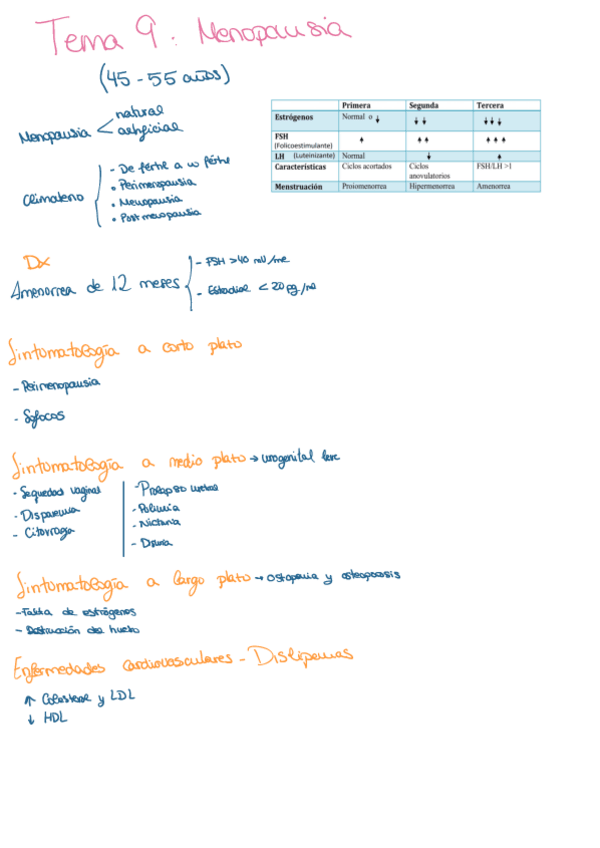 Tema 9: Menopausia
(45-55 años)
Menopausia < natural
artificial
Climaterio
- De fértil a no fértil
• Perimenopausia
• Menopausia
• Postmenopausia
Primera Segunda Tercera
Estrógenos Normal o ↓ ↓↓ ↓↓↓
FSH (Folicoestimulante) ↑ ↑↑ ↑↑↑
LH (Luteinizante) Normal ↓ ↑
Características Ciclos acortados Ciclos anovulatorios FSH/LH >1
Menstruación Proiomenorrea Hipermenorrea Amenorrea
Dx
Amenorrea de 12 meses
- FSH >40 mU/ml
- Estradiol < 20 pg/ml
Sintomatología a corto plazo
- Perimenopausia
- Sofocos
Sintomatología a medio plazo → urogenital leve
- Sequedad vaginal
- Dispareunia
- Citorragia
- Prolapso uretral
- Poliuria
- Nicturia
- Disuria
Sintomatología a largo plazo → Ostopenia y osteoporosis
- Falta de estrógenos
- Destrucción del hueso
Enfermedades cardiovasculares - Dislipemias
↑ Colesterol y LDL
↓ HDL